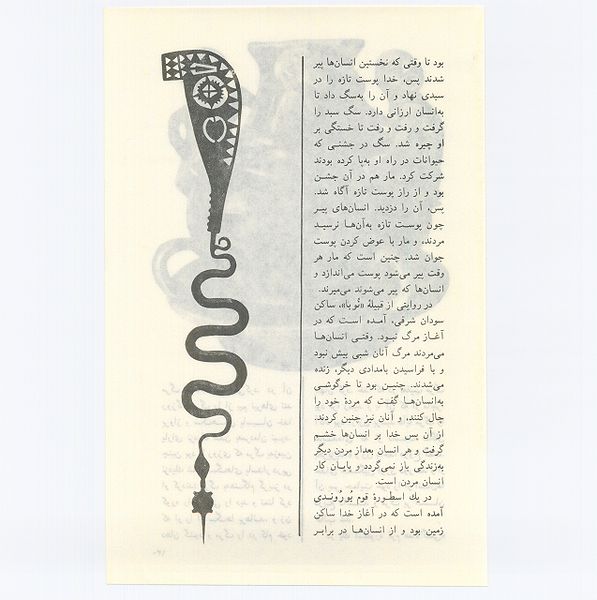 بود تا وقتی که نخستین انسان‌ها پیر
شدند پس، خدا پوست تازه را در
سبدی نهاد و آن را به‌سگ داد تا
به‌انسان ارزانی دارد. سگ سبد را
گرفت و رفت و رفت تا خستگی بر
او چیره شد. سگ در جشنی که
حیوانات در راه او به‌پا کرده بودند
شرکت کرد. مار هم در آن جشن
بود و از راز پوست تازه آگاه شد.
پس، آن را دزدید. انسان‌های پیر
چون پوست تازه به‌آن‌ها نرسید
مردند، و مار با عوض کردن پوست
جوان شد. چنین است که مار هر
وقت پیر می‌شود پوست می‌اندازد و
انسان‌ها که پیر می‌شوند می‌میرند.
در روایتی از قبیلهٔ «نُوبا»، ساکن
سودان شرقی، آمده است که در
آغاز مرگ نبود. وقتی انسان‌ها
می‌مردند مرگ آنان شبی بیش نبود
و با فرارسیدن بامدادی دیگر، زنده
می‌شدند. چنین بود تا خرگوشی
به‌انسان‌ها گفت که مردهٔ خود را
چال کنند، و آنان نیز چنین کردند.
از آن پس خدا بر انسان‌ها خشم
گرفت و هر انسان بعداز مردن دیگر
به‌زندگی باز نمی‌گردد و پایان کار
انسان مردن است.
در یك اسطورهٔ قوم بُورُوندی
آمده است که در آغاز خدا ساکن
زمین بود و از انسان‌ها در برابر